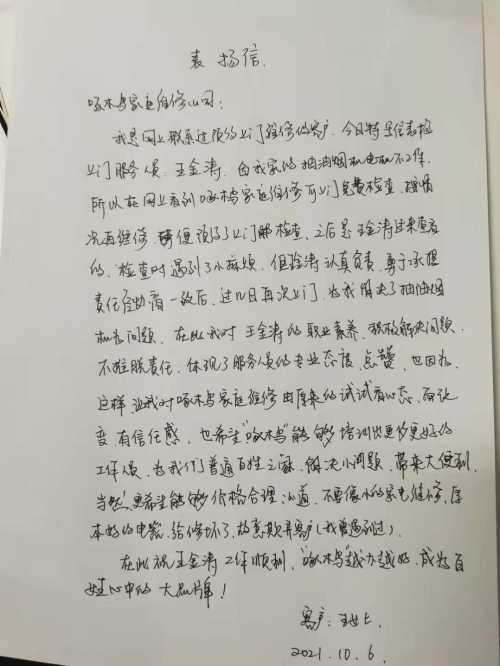 表扬信.
啄木鸟家庭维修公司:
我是网上联系过预约上门维修的客户,今日特呈信表扬
上门服务人员:王金涛,因我家的抽油烟机电机不工作,
所以在网上看到啄木鸟家庭维修可上门免费检查,按情
况再维修,便预约了上门检查,之后是王金涛过来查看
的,检查时遇到了小麻烦,但金涛认真负责,勇于承担
责任经协商一致后,过几日再次上门,为我解决了抽油烟
机的问题,在此我对王金涛的职业素养,积极解决问题,
不推脱责任,体现了服务人员的专业态度,点赞,也因为
这样让我对啄木鸟家庭维修由原来的试试看心态,而改
变有信任感,也希望"啄木鸟"能够培训出更多更好的
工作人员,为我们普通百姓之家,解决小问题,带来大便利,
当然!更希望能够价格合理公道,不要像小的家电维修,原
本好的电器,给修坏了,故意欺弄客户(我曾遇到过).
在此祝王金涛工作顺利,"啄木鸟"越办越好,成为百
姓心中的大品牌!
客户:王女士.
2021.10.6.